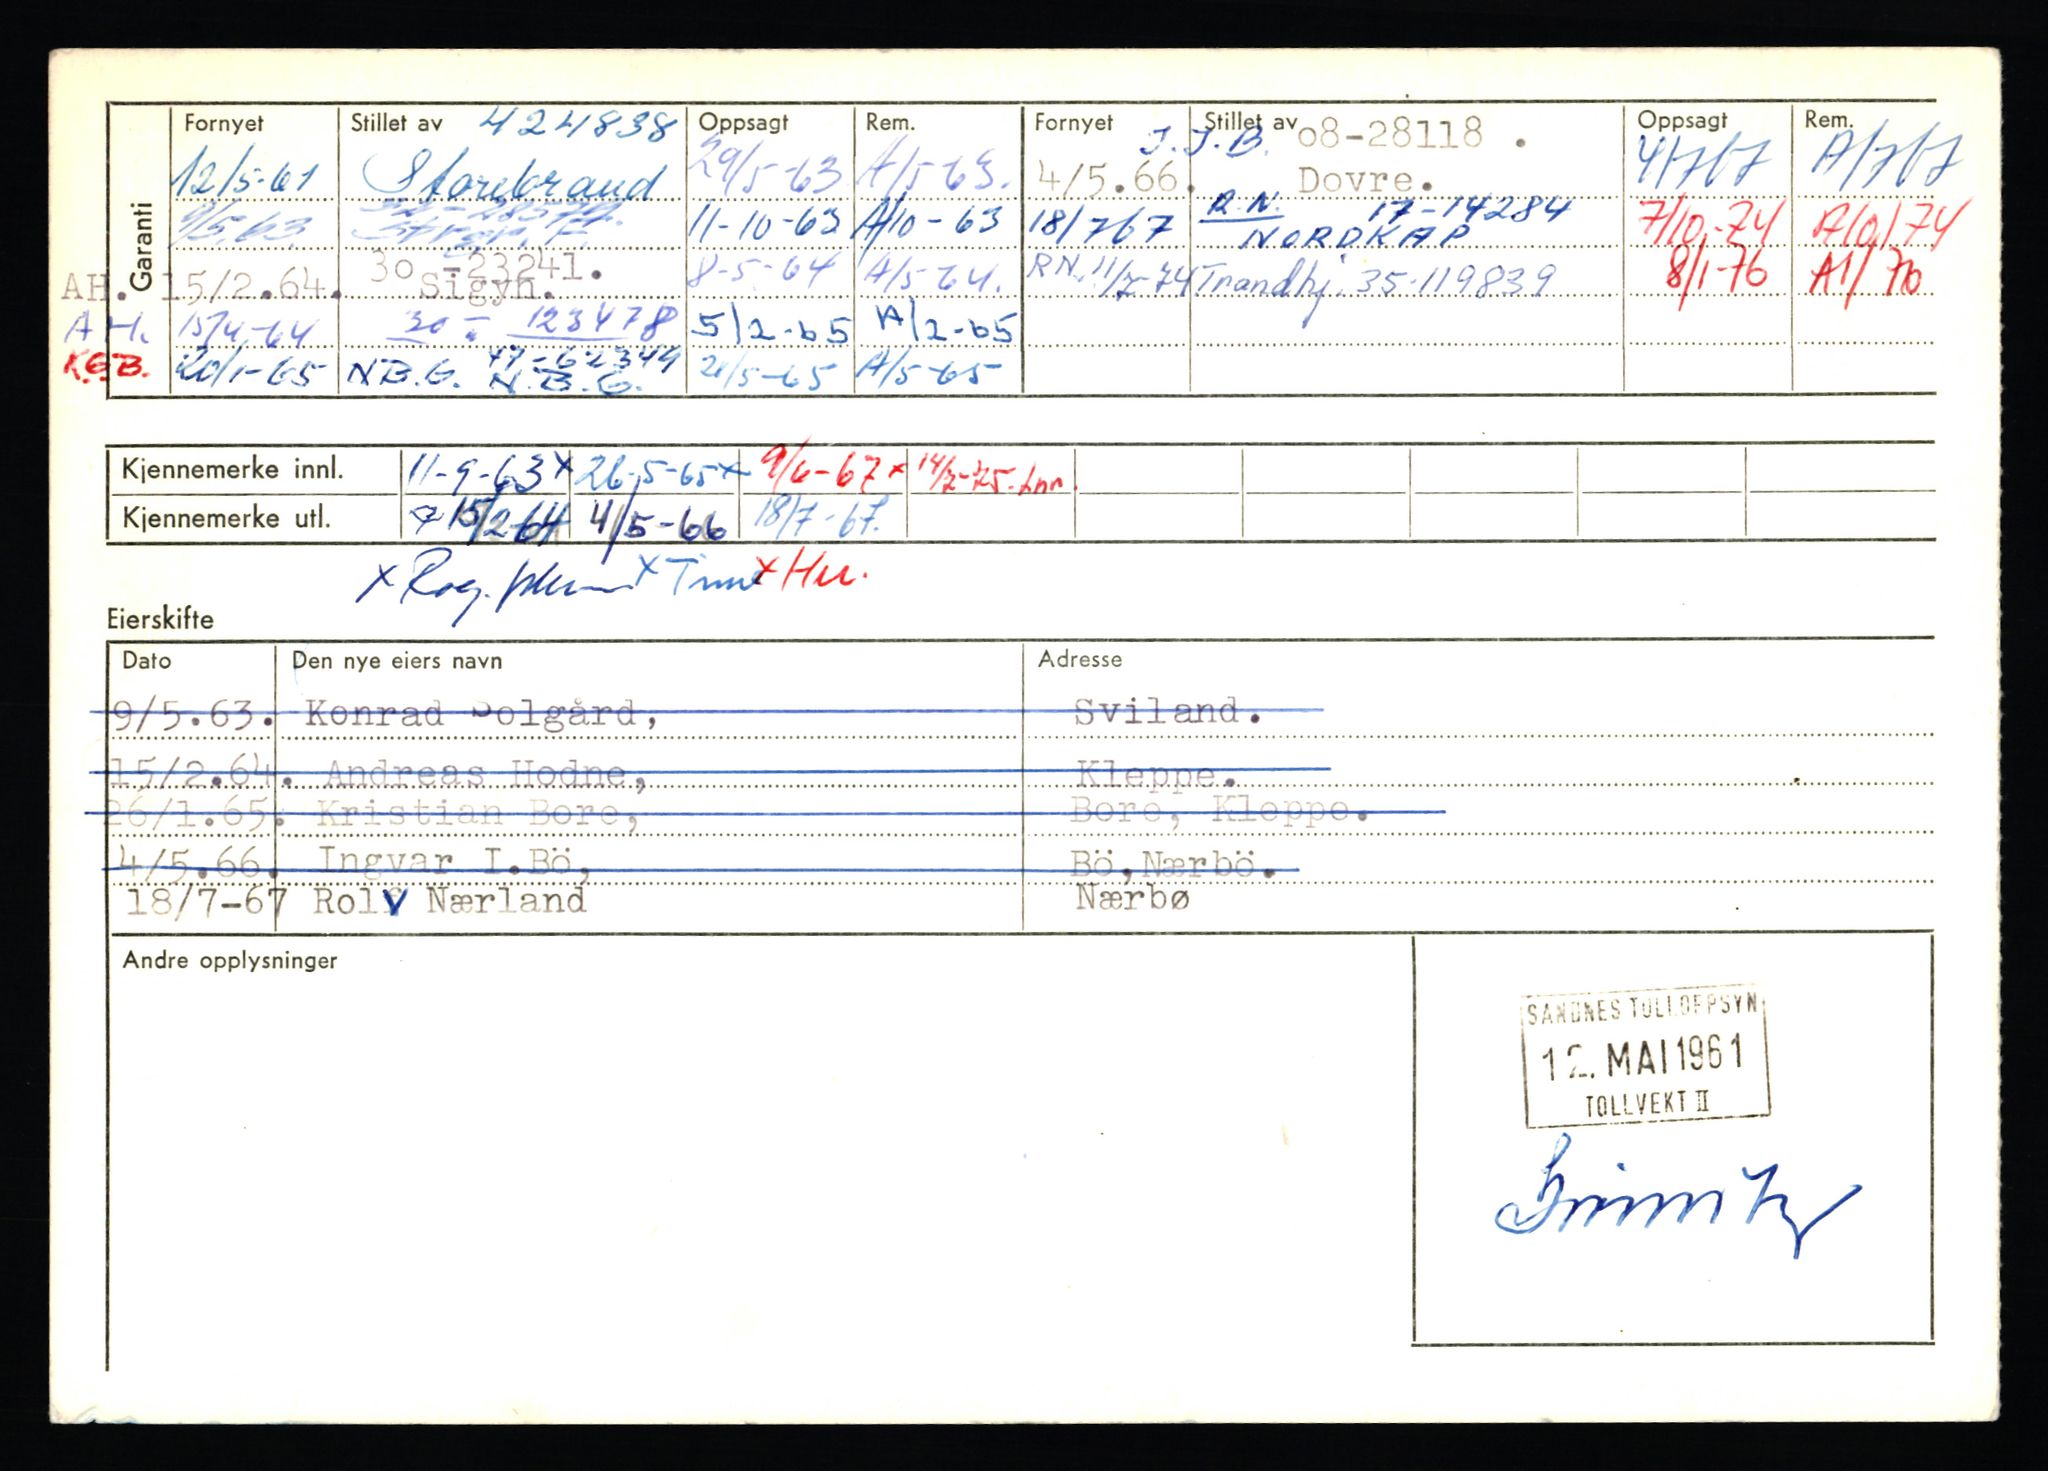 Garanti
Fornyet Stillet av 424838 Oppsagt Rem. Fornyet Stillet av o8-28118 . Oppsagt Rem.
12/5-61 Storebrand 29/5-63 A/5-63. J.J.B. 4/5.66. Dovre. 4/7 67 A/7 67
9/5.63. 11-10-63 A/10-63 18/7 67 R.N. 17-14284 NORDKAP 7/10-74 A/10/74
AH. 15/2.64. 3o -23241. Sigyn. 8-5-64 A/5-64. RN. 11/7-74 Trondhj. 35-119839 8/1-76 A1/76
AH. 15/4-64 30 - 123478 5/2-65 A/2-65
K.E.B. 20/1-65 N.B.G. 47-62344 N.B.G. 21/5-65 A/5-65
Kjennemerke innl. 11-9-63x 26-5-65x 9/6-67x 14/2-75-Inn.
Kjennemerke utl. 15/2 64 4/5-66 18/7-67.
x Rog. x Time x Hu.
Eierskifte
Dato Den nye eiers navn Adresse
9/5.63. Konrad Solgård, Sviland.
15/2.64. Andreas Hodne, Kleppe.
26/1.65. Kristian Bore, Bore, Kleppe.
4/5.66. Ingvar I.Bö, Bö,Nærbö.
18/7-67 Rolv Nærland Nærbø
Andre opplysninger
SANDNES TOLLOPPSYN
12. MAI 1961
TOLLVEKT II